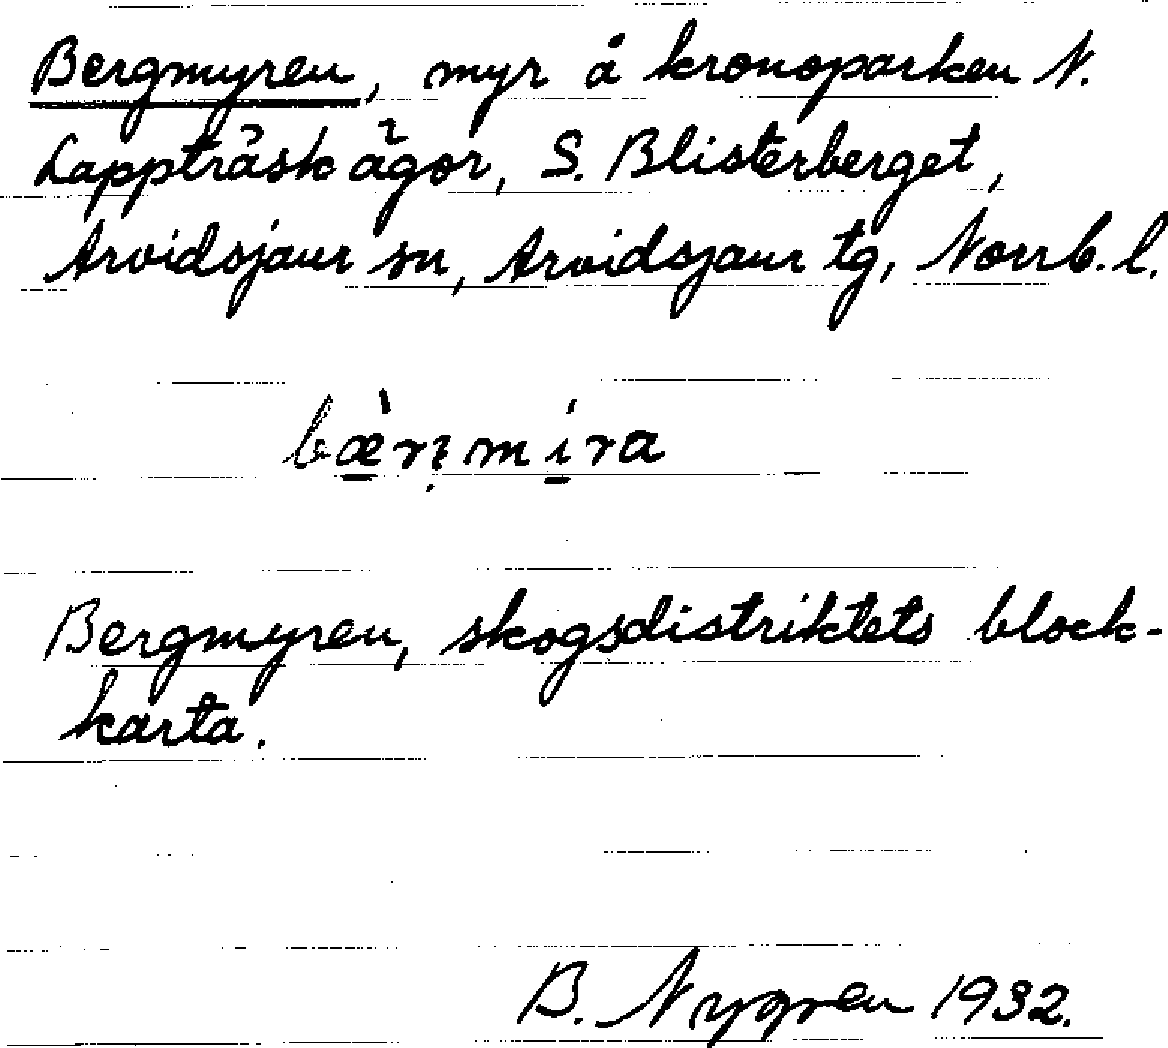 Bergmyren, myr å kronoparken N.
Lappträsk ägor, S. Blisterberget,
Arvidsjaur sn, Arvidsjaur tg, Norrb. l.
Bergmyren, skogsdistriktets block-
karta.
B. Nygren 1932.